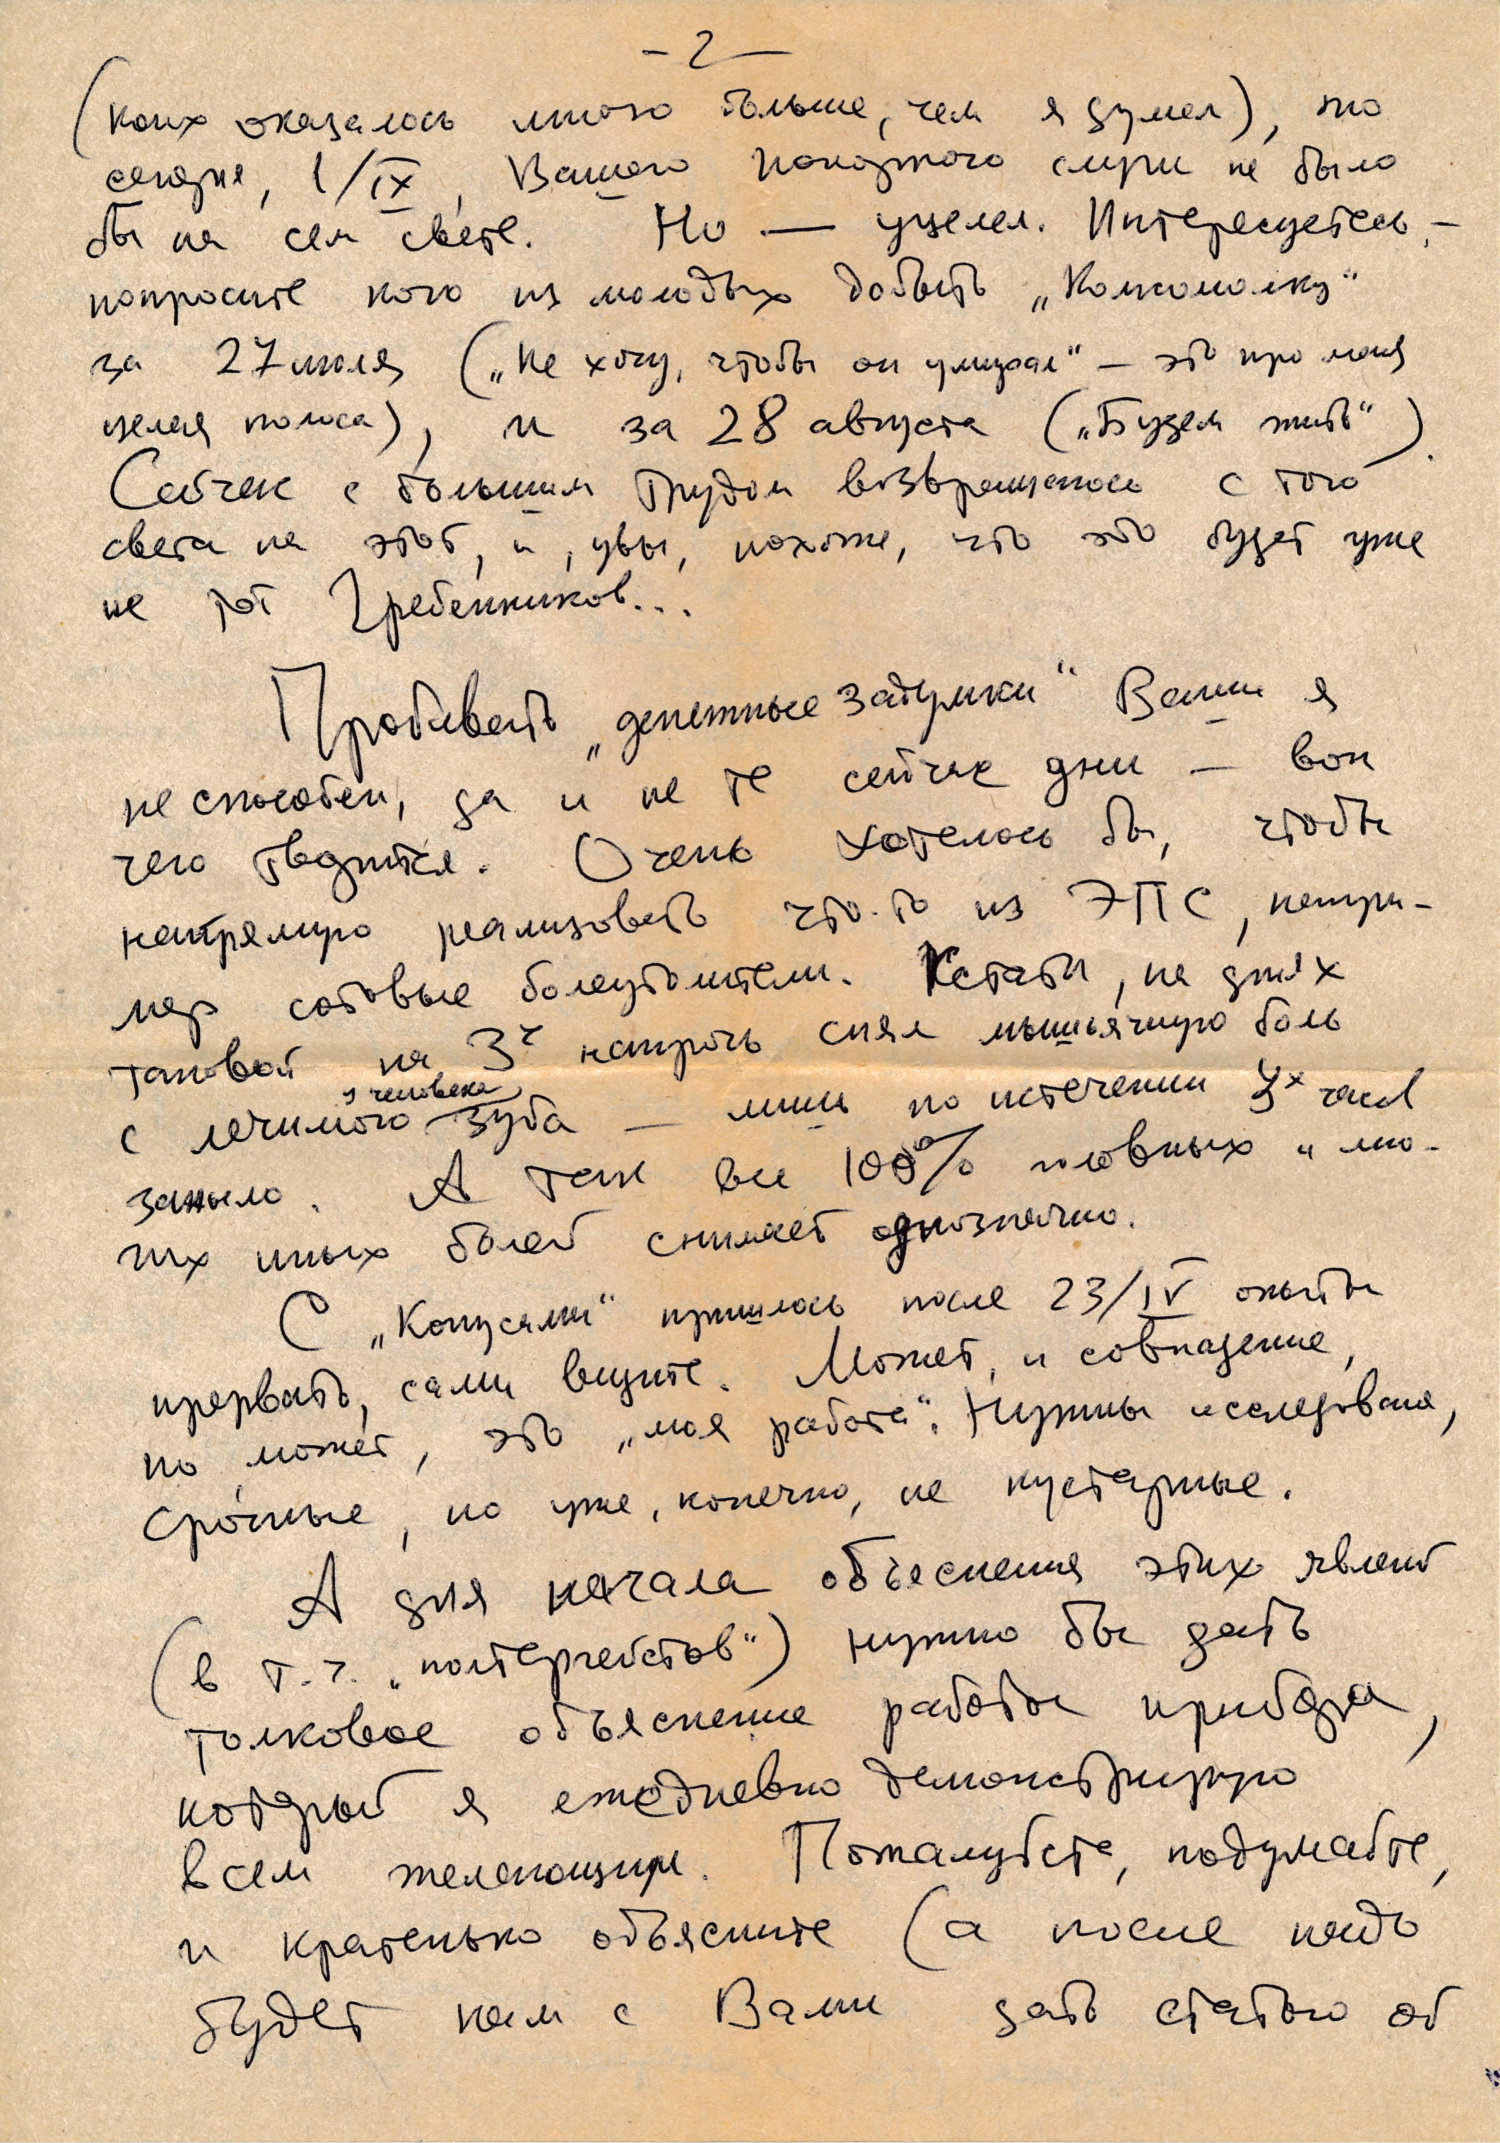 – 2 –
(коих оказалось много больше, чем я думал), то
сегодня, 1/IX, Вашего покорного слуги не было
бы на сем свете. Но — уцелел. Интересуетесь, –
попросите кого из молодых добыть „Комсомолку“
за 27 июля („Не хочу, чтобы он умирал“ – это про меня
целая полоса), и за 28 августа („Будем жить“).
Сейчас с большим трудом возвращаюсь с того
света на этот, и, увы, похоже, что это будет уже
не тот Гребенников...
Пробивать „денежные задумки“ Ваши я
не способен, да и не те сейчас дни – вон
чего творится. Очень хотелось бы, чтобы
напрямую реализовать что-то из ЭПС, напри-
мер сотовые болеутолители. Кстати, на днях
таковой на 3ч напрочь снял мышьячную боль
у человека
с лечимого зуба – лишь по истечении 3х часов
заныло. А так все 100% головных и мно-
гих иных болей снимает однозначно.
С „Конусами“ пришлось после 23/IV опыты
прервать, сами видите. Может, и совпадение,
но, может, это „моя работа“. Нужны исследования,
срочные, но уже, конечно, не кустарные.
А для начала объяснения этих явлений
(в т.ч. „полтергейстов“) нужно бы дать
толковое объяснение работы прибора,
который я ежедневно демонстрирую
всем желающим. Пожалуйста, подумайте,
и кратенько объясните (а после надо
будет нам с Вами дать статью об